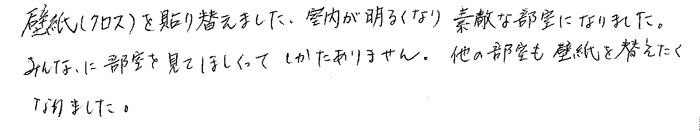 壁紙(クロス)を貼り替えました、室内が明るくなり 素敵な部室になりました。
みんな、に 部室を見てほしくって しかたありません。 他の部室も 壁紙を替えたく
なりました。